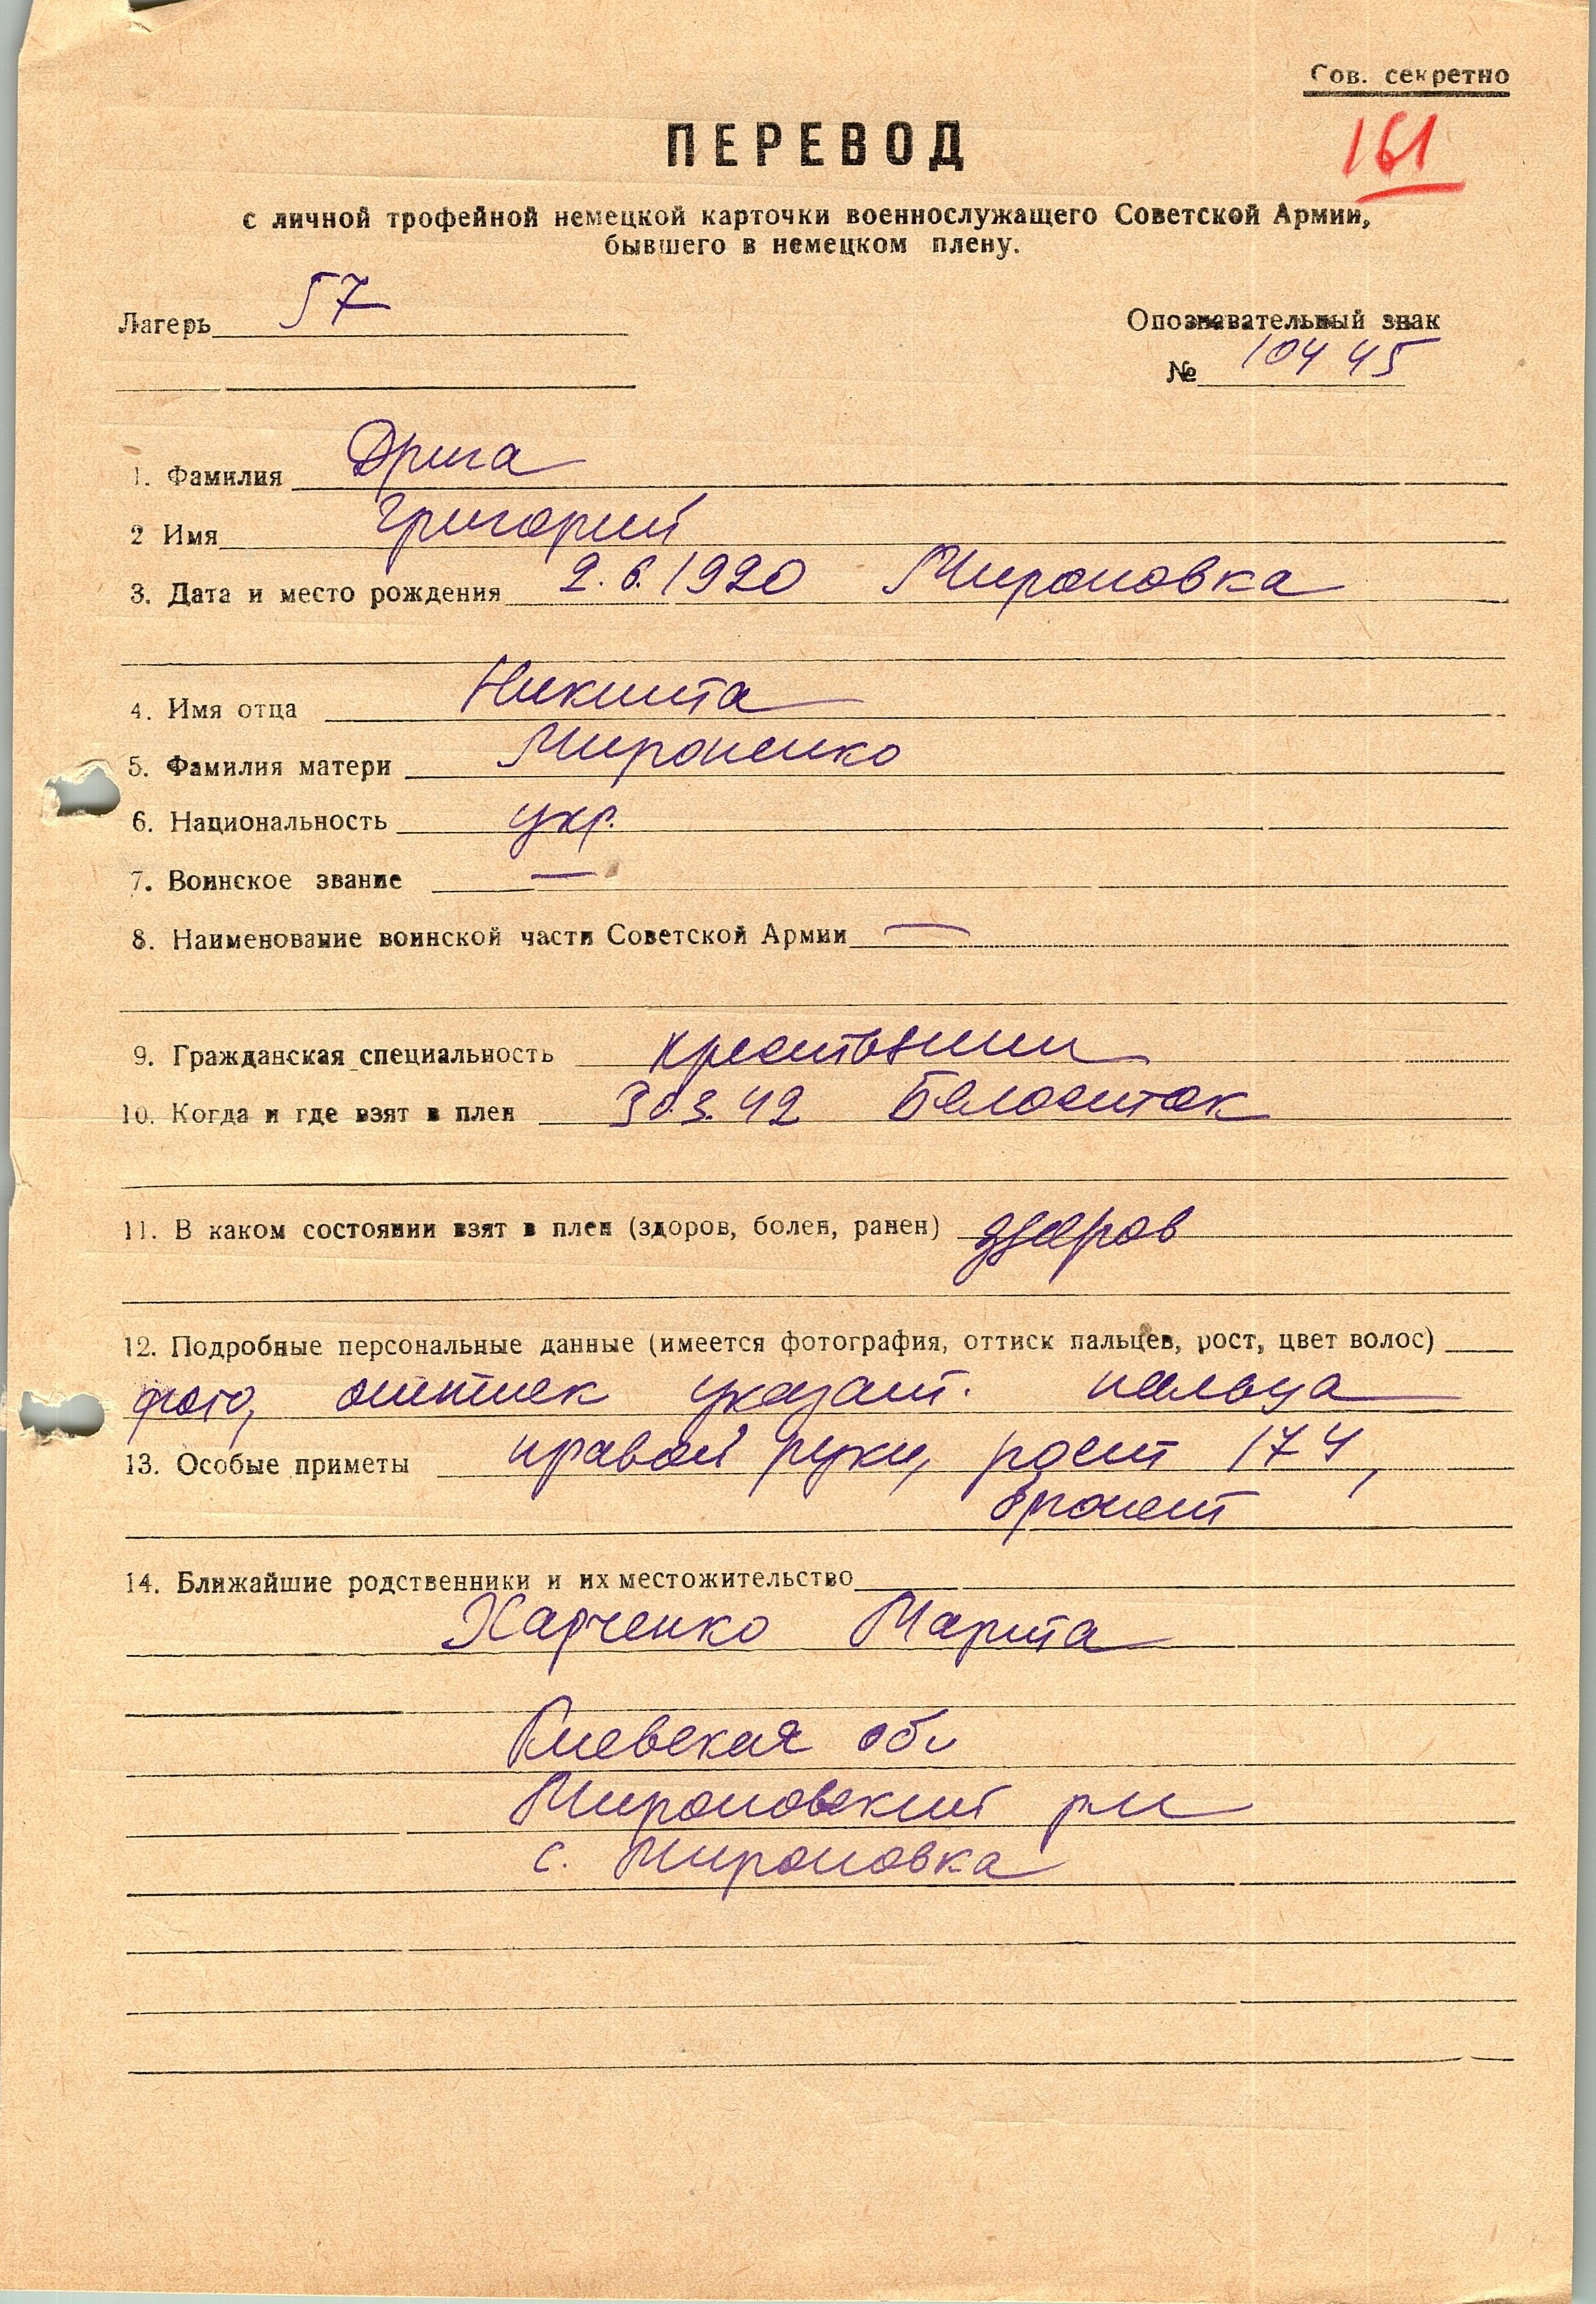 Сов. секретно
161
ПЕРЕВОД
с личной трофейной немецкой карточки военнослужащего Советской Армии,
бывшего в немецком плену.
Лагерь 57
Опознавательный знак
№ 10445
1. Фамилия Дрига
2 Имя Григорий
3. Дата и место рождения 2.6.1920 Мироновка
4. Имя отца Никита
5. Фамилия матери Мироненко
6. Национальность укр.
7. Воинское звание —
8. Наименование воинской части Советской Армии —
9. Гражданская специальность крестьянин
10. Когда и где взят в плен 30.3.42 Белосток
11. В каком состоянии взят в плен (здоров, болен, ранен) здоров
12. Подробные персональные данные (имеется фотография, оттиск пальцев, рост, цвет волос)
фото, оттиск указат. пальца
13. Особые приметы правой руки, рост 174,
брюнет
14. Ближайшие родственники и их местожительство
Харченко Марта
Киевская обл
Мироновский р-н
с. Мироновка